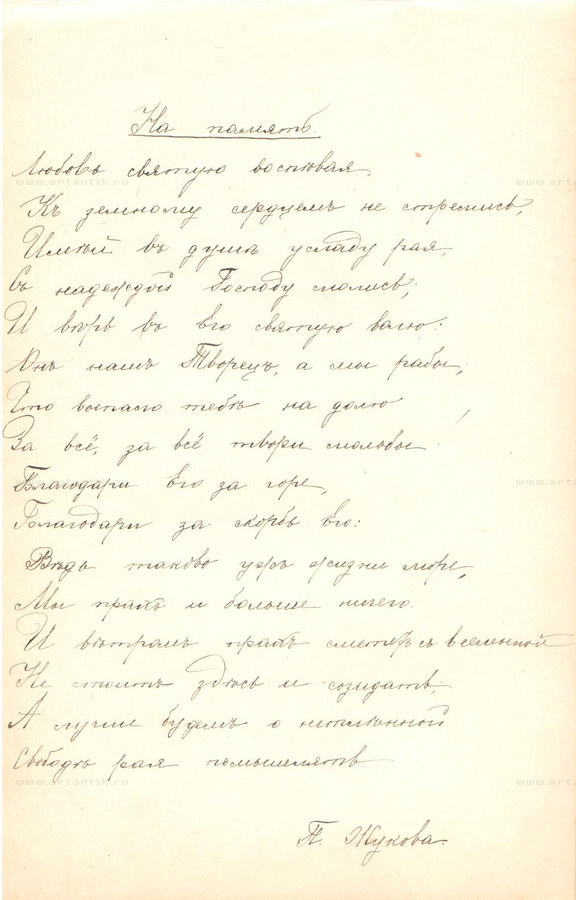 На память.
Любовь святую воспѣвая,
Къ земному сердцемъ не стремись,
Имѣй въ душѣ усладу рая,
Съ надеждой Господу молись;
И вѣрь въ Его святую волю:
Онъ нашъ Творецъ, а мы рабы,
Что выпало тебѣ на долю,
За всё, за всё твори мольбы.
Благодари Его за горе,
Благодари за скорбь Его:
Вѣдь таково ужъ жизни море,
Мы прахъ и больше ничего.
И вѣтромъ прахъ сметется вселенной
Не стоитъ здѣсь и созидать;
А лучше будемъ о нетлѣнной
Свободѣ рая помышлять
П. Жукова.
www.artantik.ru
www.artantik.ru
www.artantik.ru